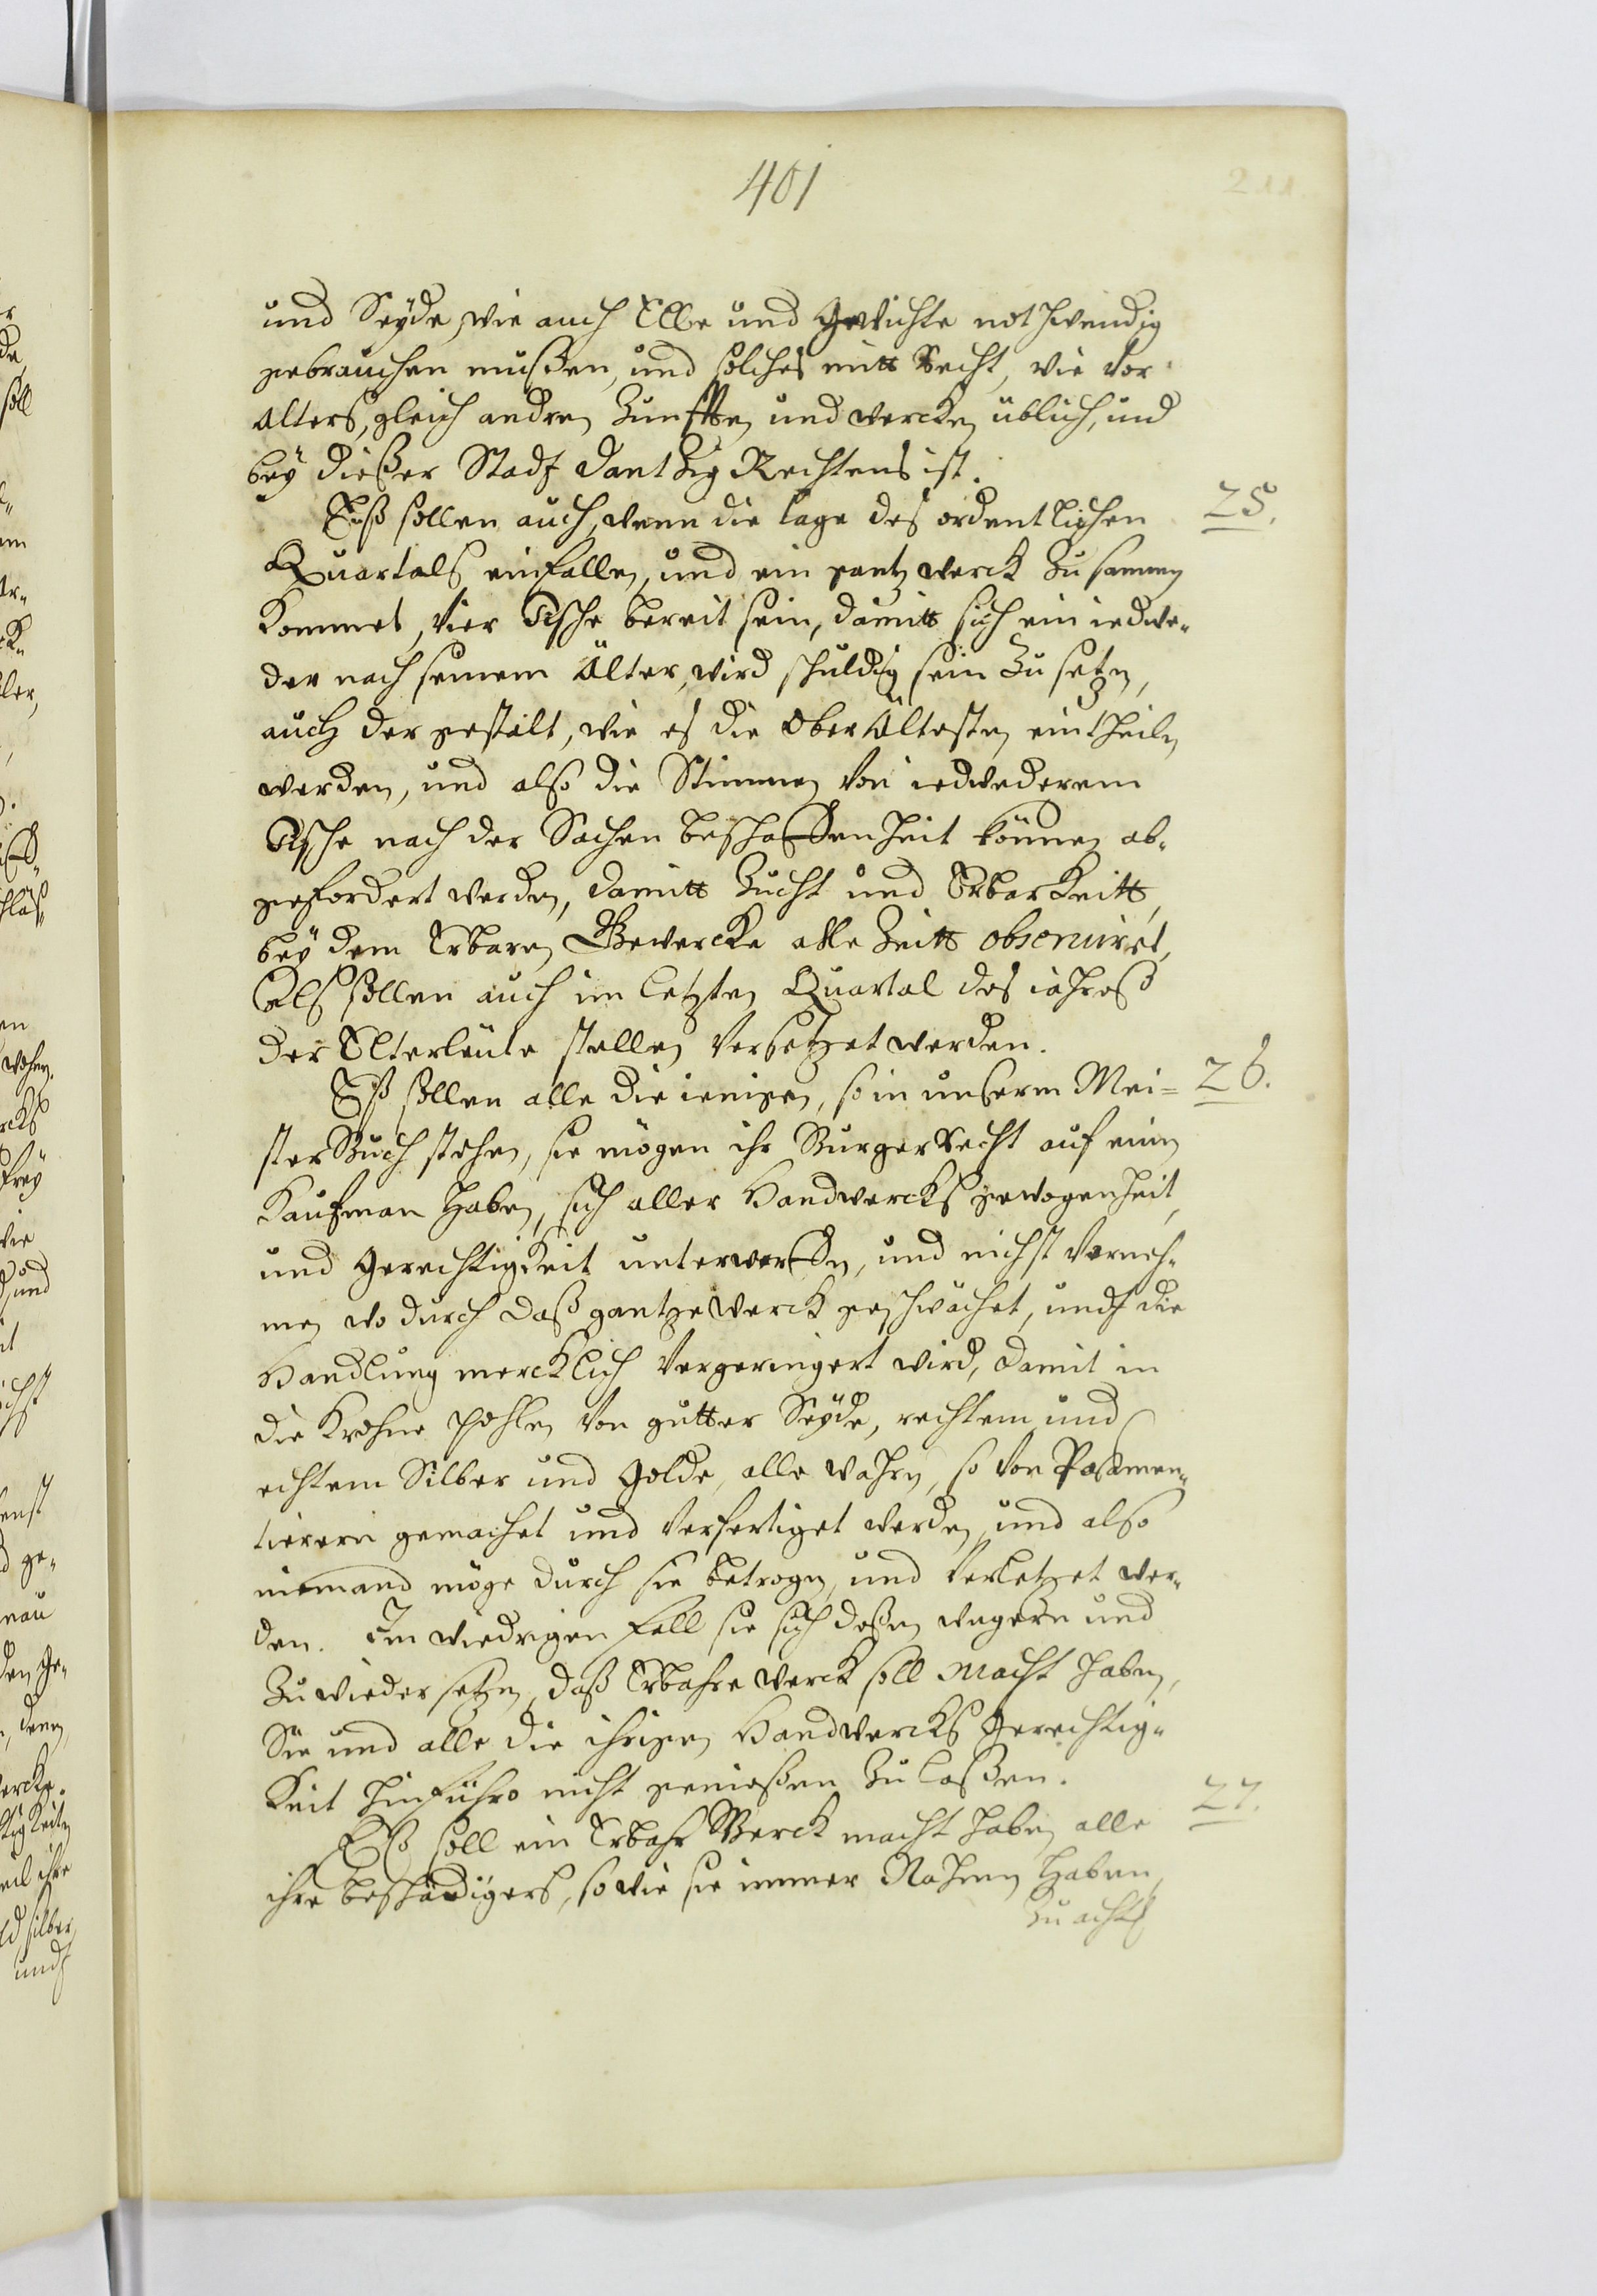 401
211.
und Seÿde, wie auch Elle und Gewichte nothwendig
gebrauchen mußen, und solches mitt Recht, wie vor
alters, gleich andren Zunfften und wercken üblich, und
beÿ dießer Stadt Dantzig Rechtens ist.
25.
Eß sollen auch, wenn die tage des ordentlichen
Quartals einfallen, und ein gantz werck zusammen
kommet, vier Tische bereit sein, damitt sich ein iedwe-
der nach seinem Alter, wird schuldig sein zu setzen,
auch der gestalt, wie es die Oberältesten eintheilen
werden, und also die Stimmen von iedwederem
Tische nach der Sachen beschaffenheit können ab-
gefordert werden, damitt Zucht und Erbarkeitt,
beÿ dem Erbaren Gewercke alle Zeitt observiret,
Als sollen auch im letzten Quartal des iahreß
der Elterleute stellen versetzet werden.
26.
Eß sollen alle die ienigen, so in unserm Mei=
ster Buch stehen, sie mögen ihr Burger Recht auf einen
Kaufman haben, sich aller Handwercks gewogenheit,
und Gerechtigkeit unterwerffen, und nichst verneh-
men wo durch daß gantze werck geschwächet, undt die
Handlung mercklich vergeringert wird, damit in
die Krohne Pohlen von gutter Seÿde, rechtem und
echtem Silber und Golde, alle wahren, so von Posamen-
tierern gemachet und verfertiget werden, und also
niemand möge durch sie betrogen, und verletzet wer-
den. Im wiedrigen fall sie sich deßen wegern und
zuwieder setzen, daß Erbahre werck soll macht haben,
Sie und alle die ihrigen Handwercks Gerechtig-
keit hinführo nicht genießen zu laßen.
27.
Eß soll ein Erbahr Werck macht haben alle
ihre beschädigers, so wie sie immer Nahmen haben,
zu acht